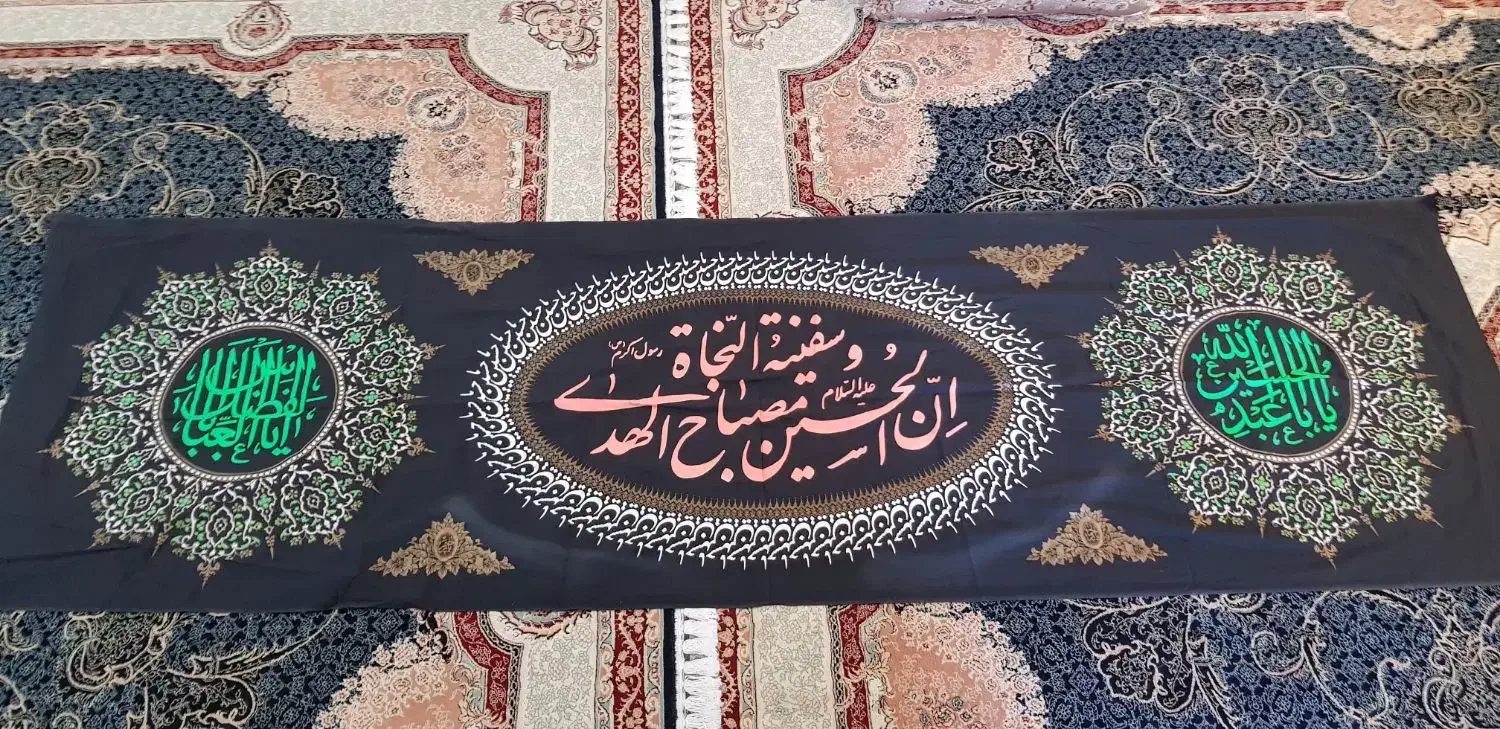 یا اباعبدالله الحسین ع
ان الحسین علیه السلام مصباح الهدی
و سفینة النجاة
رسول اکرم (ص)
یا اباالفضل العباس ع